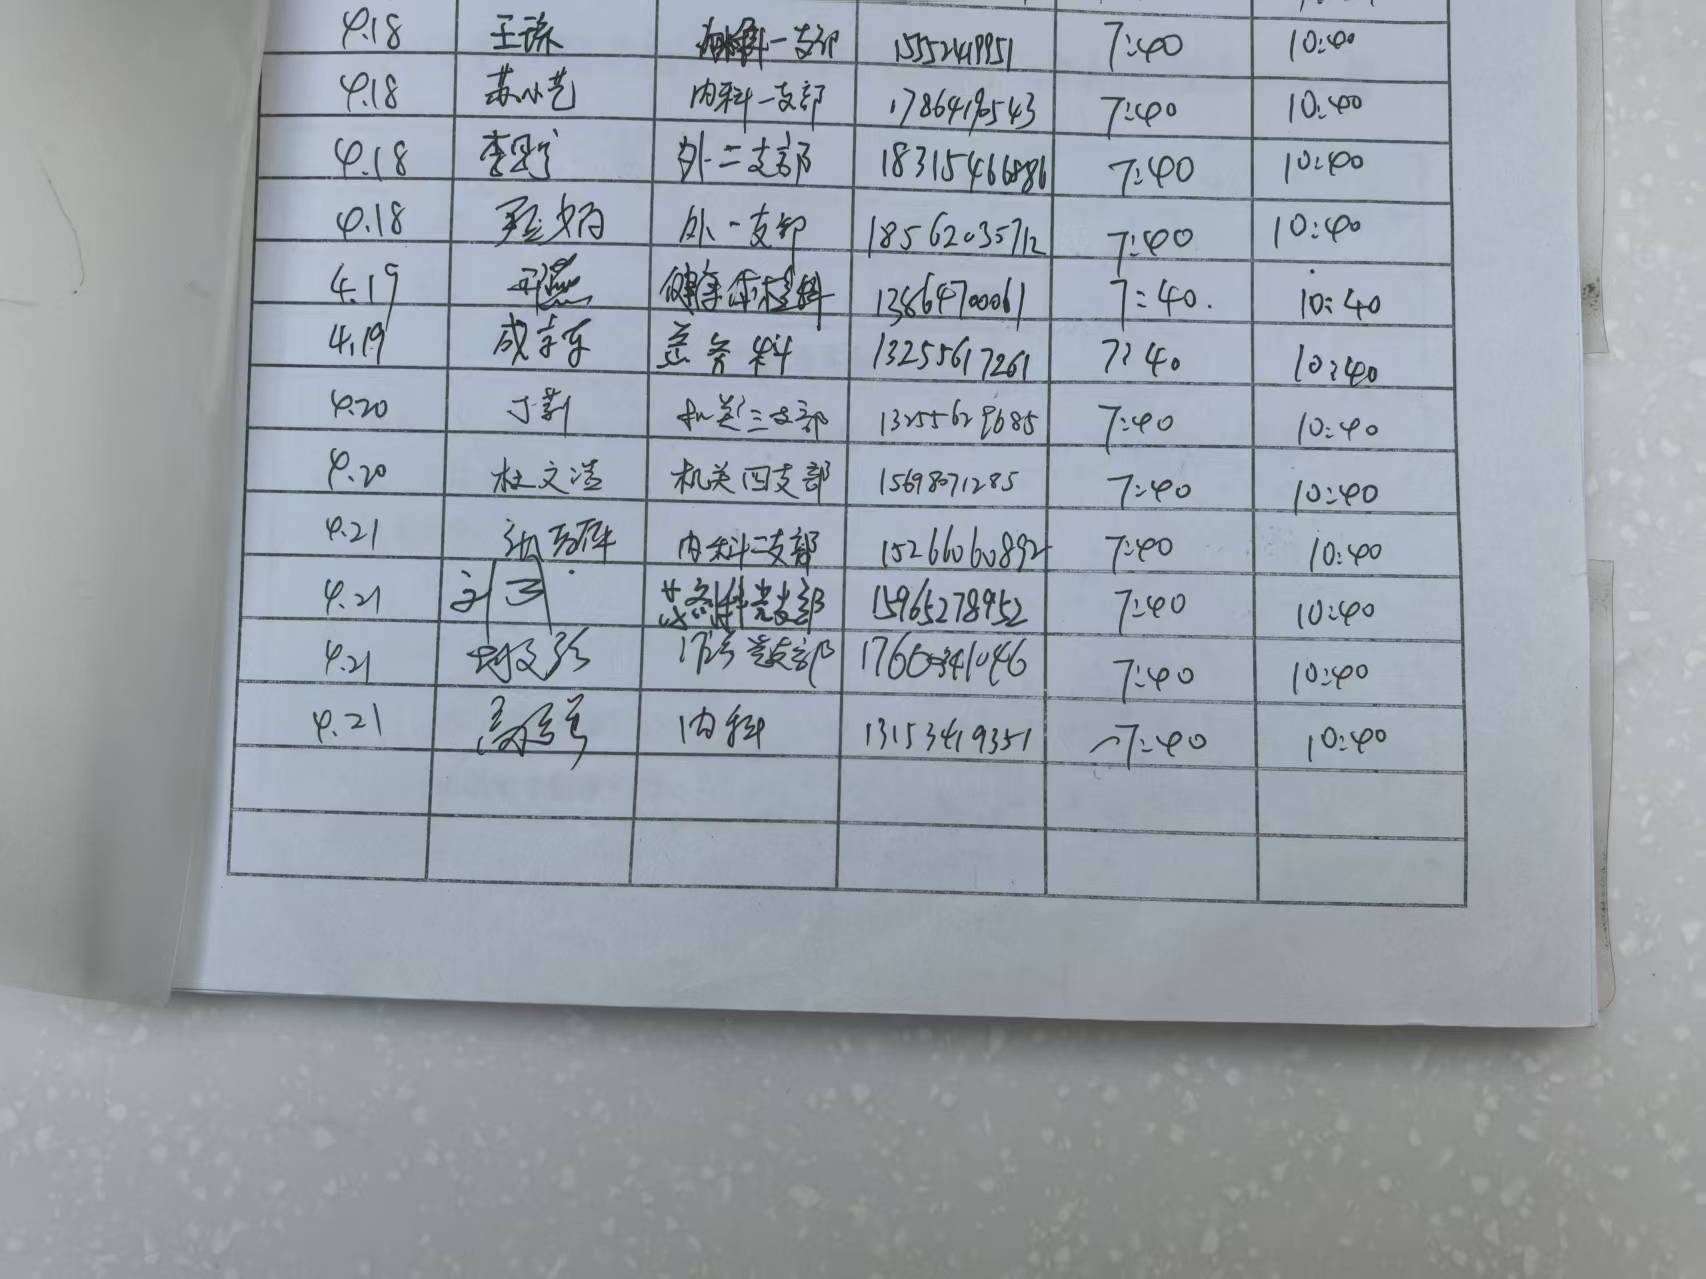 4.18 王 内科一支部 15552419951 7:40 10:40
4.18 苏小艺 内科一支部 17864190543 7:40 10:40
4.18 李 外二支部 18315466886 7:40 10:40
4.18 外一支部 18562035712 7:40 10:40
4.19 健康体检科 13864700061 7:40. 10:40
4.19 成京东 营养科 13255617261 7:40 10:40
4.20 丁 机关三支部 13255629685 7:40 10:40
4.20 杜文洁 机关四支部 15698071285 7:40 10:40
4.21 内科二支部 15266060892 7:40 10:40
4.21 刘 党支部 15965278952 7:40 10:40
4.21 党支部 7:40 10:40
4.21 内科 13153419351 7:40 10:40